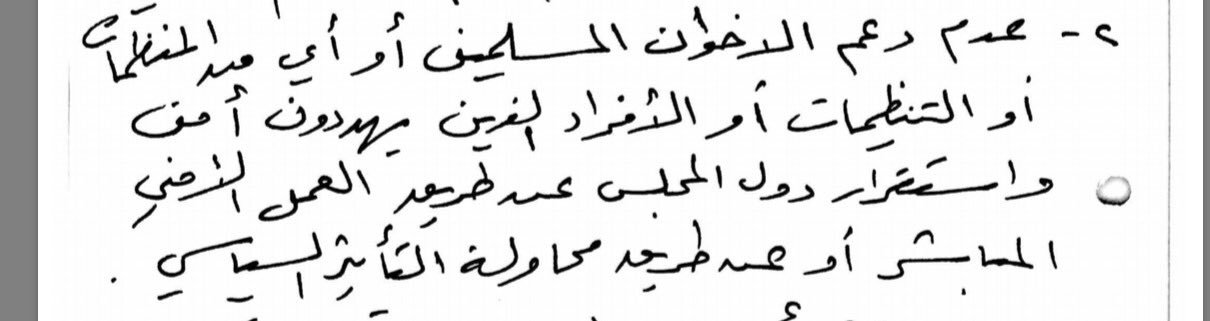 ٢- عدم دعم الاخوان المسلمين أو أي من المنظمات
أو التنظيمات أو الأفراد الذين يهددون أمن
واستقرار دول المجلس عن طريق العمل الأمني
المباشر أو عن طريق محاولة التأثير السياسي .